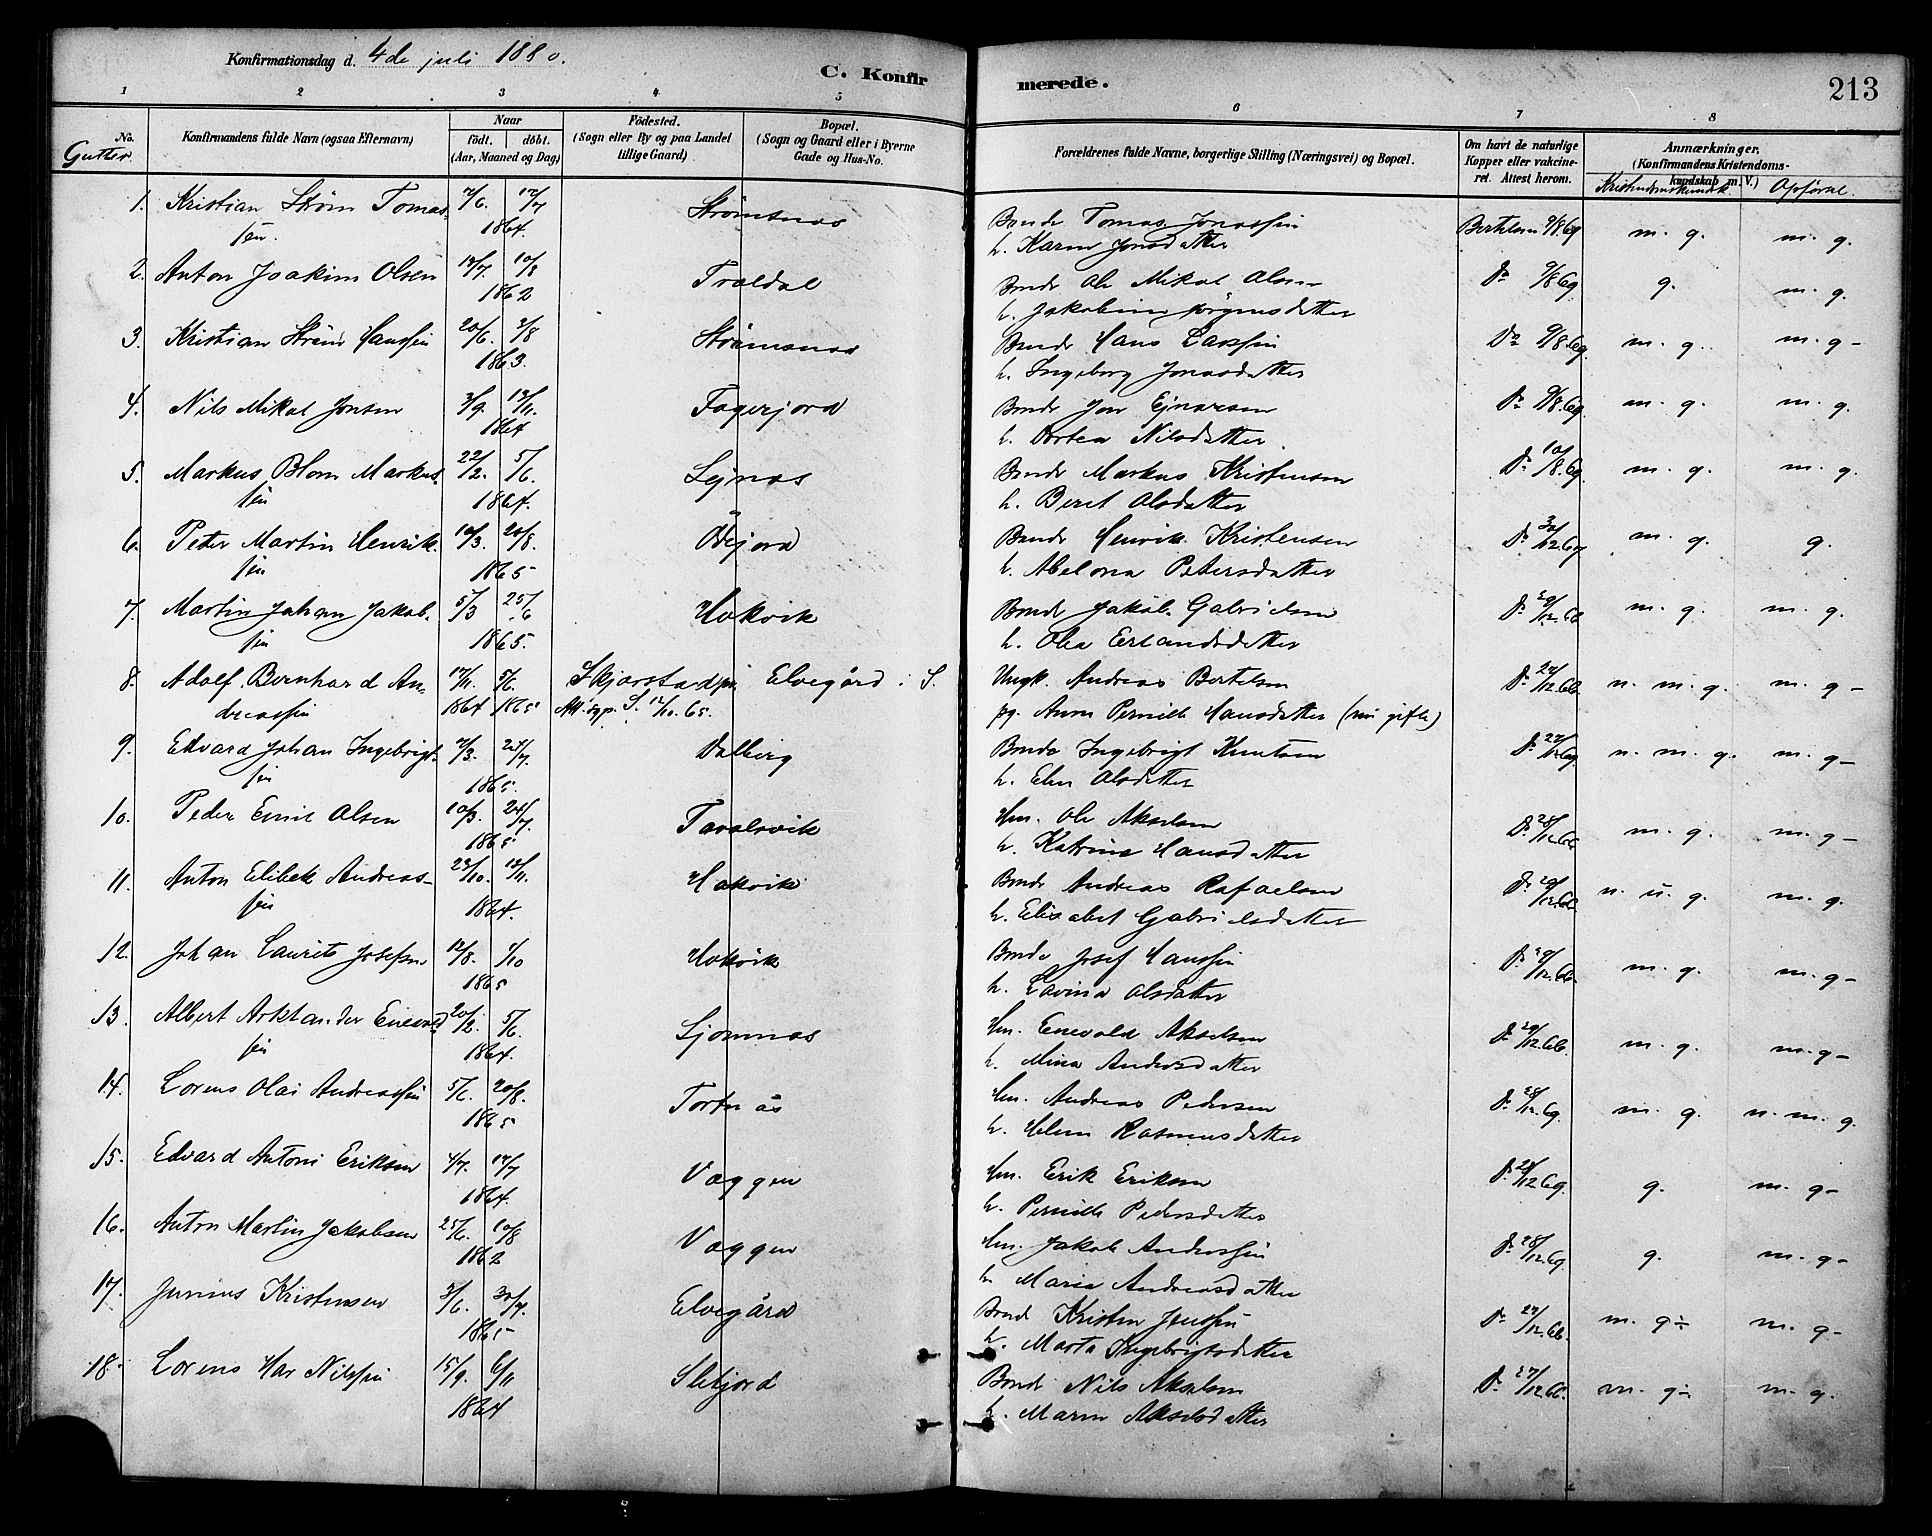 Konfirmationsdag d. 4de juli 1880.
C. Konfir
merede.
213
1 2 3 4 5 6 7 8
No.
Gutter.
Konfirmandens fulde Navn (ogsaa Efternavn)
Naar
født. døbt.
(Aar, Maaned og Dag)
Fødested.
(Sogn eller By og paa Landet
tillige Gaard)
Bopæl.
(Sogn og Gaard eller i Byerne
Gade og Hus-No.
Forældrenes fulde Navne, borgerlige Stilling (Næringsvei) og Bopæl.
Om havt de naturlige
Kopper eller vakcine-
ret. Attest herom.
Anmærkninger.
(Konfirmandens Kristendoms-
kundskab m. V.)
Kristendomskundsk. Opførsel.
1. Kristian Strøm Tomas- 12/7 Strømsnes Bonde Tomas Jonassen Bertelsen 9/8.69 m. g. m. g.
sen. 1864. h. Karen Jonsdatter
2. Anton Joakim Olsen 10/8 Traldal Bonde Ole Mikal Olsen Do 9/8 69 g. m. g.
1862 h. Jakobine Jørgensdatter
3. Kristian Strøm Hanssen 20/6. 2/8 Strømsnes Bonde Hans Larssen Do 9/8.69. m. g. m. g-
1863. h. Ingeborg Jonasdatter
4. Nils Mikal Jonsen 3/9. 13/11. Fagerjord Bonde Jon Ejnarsen Do 9/8.69. m. g. m. g.
1864 h. Dortea Nilsdatter.
5. Markus Blom Markus- 22/2. 5/6. Lejnes Bonde Markus Kristensen Do 10/8.69 m. g. m. g.
sen 1864. h. Beret Olsdatter
6. Peter Martin Henrik- 20/8. Øiejord Bonde Henrik Kristensen Do m. g. g.
sen 1865 h. Abelona Petersdatter
7. Martin Johan Jakob- 5/3 25/6 Hakvik Bonde Jakob Gabrielsen Do m. g. m. g.
sen 1865. h. Olea Erlandsdatter
8. Adolf Bernhard An- 17/11. 5/6. Skjerstad Elvegård i S. Ungk. Andreas Bertelsen Do 27/12.66 n. m. g. m. g-
dreassen 1864 1865 S. 17/10. 65. pg. Anne Pernille Hansdatter (nu gifte)
9. Edvard Johan Ingebrigt- 24/7. Dalberg Bonde Ingebrigt Knutsen Do n. m. g. m. g-
sen 1865. h. Elen Olsdatter
10. Peder Emil Olsen 10/3. 24/7. Taralsvik Hm. Ole Akselsen Do 28/12.66. m. g. m. g-
1865 h. Katrine Hansdatter
11. Anton Elibek Andreas- 13/11. Hakvik Bonde Andreas Rafaelsen Do 29/12.66 m. g.
sen 1864. h. Elisabet Gabrielsdatter
12. Johan Laurits Josefsen 12/8. 1/10 Hakvik Bonde Josef Hanssen Do m. g. m. g-
1865 h. Lovina Olsdatter
13. Albert Arktander Enevold- 20/2. 5/6. Sjomnes Hm. Enevold Akselsen Do 29/12.66. m. g. m. g-
sen 1864. h. Mina Andersdatter
14. Lorens Olai Andreassen 5/6. 20/8. Tortnås Hm. Andreas Pedersen Do m. g. n. m. g.
1865 h. Helene Rasmusdatter
15. Edvard Antoni Eriksen 4/7. 17/7 Vaggen Hm. Erik Eriksen Do g. m. g-
1864. h. Pernille Pedersdatter
16. Anton Martin Jakobsen 25/6. 10/8 Vaggen Hm. Jakob Anderssen Do 28/12.69. g. m. g-
1862 h. Maria Andreasdatter
17. Junius Kristensen 3/6. 30/7. Elvegård Bonde Kristen Jenssen Do 27/12.66. m. g÷ m. g-
1865- h. Marta Ingebrigtsdatter
18. Lorens Nilssen 15/9. 6/11 Slekjord Bonde Nils Akselsen Do 27/12.66. m. g÷ m. g.
1864 h. Maren Akselsdatter